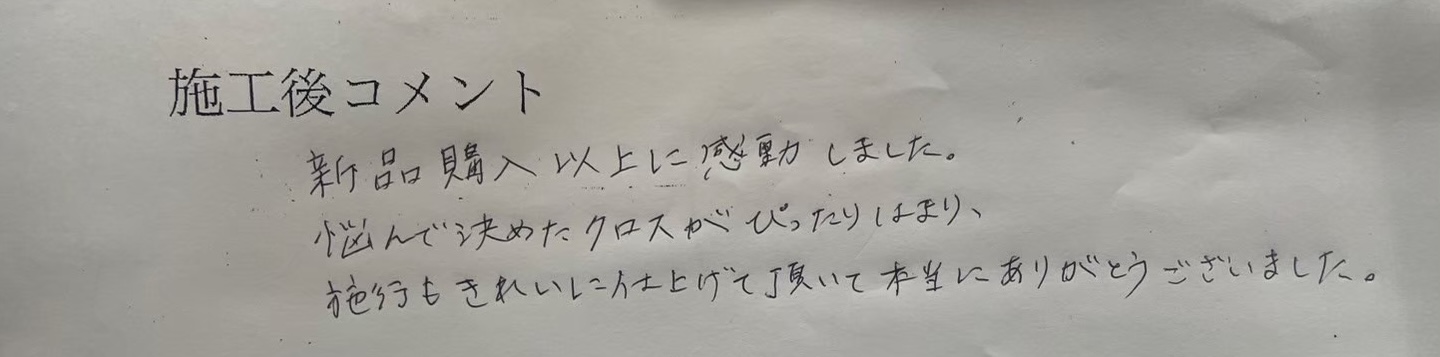 施工後コメント
新品購入以上に感動しました。
悩んで決めたクロスがぴったりはまり、
施行もきれいに仕上げて頂いて本当にありがとうございました。